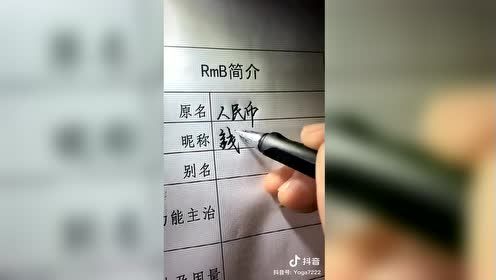 RmB简介
原名 人民币
昵称 钱
别名
功能主治
及用量
抖音
抖音号: Yoga7222